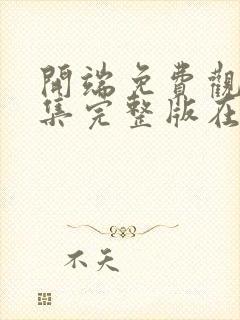 開端免費觀
集完整版在
不天